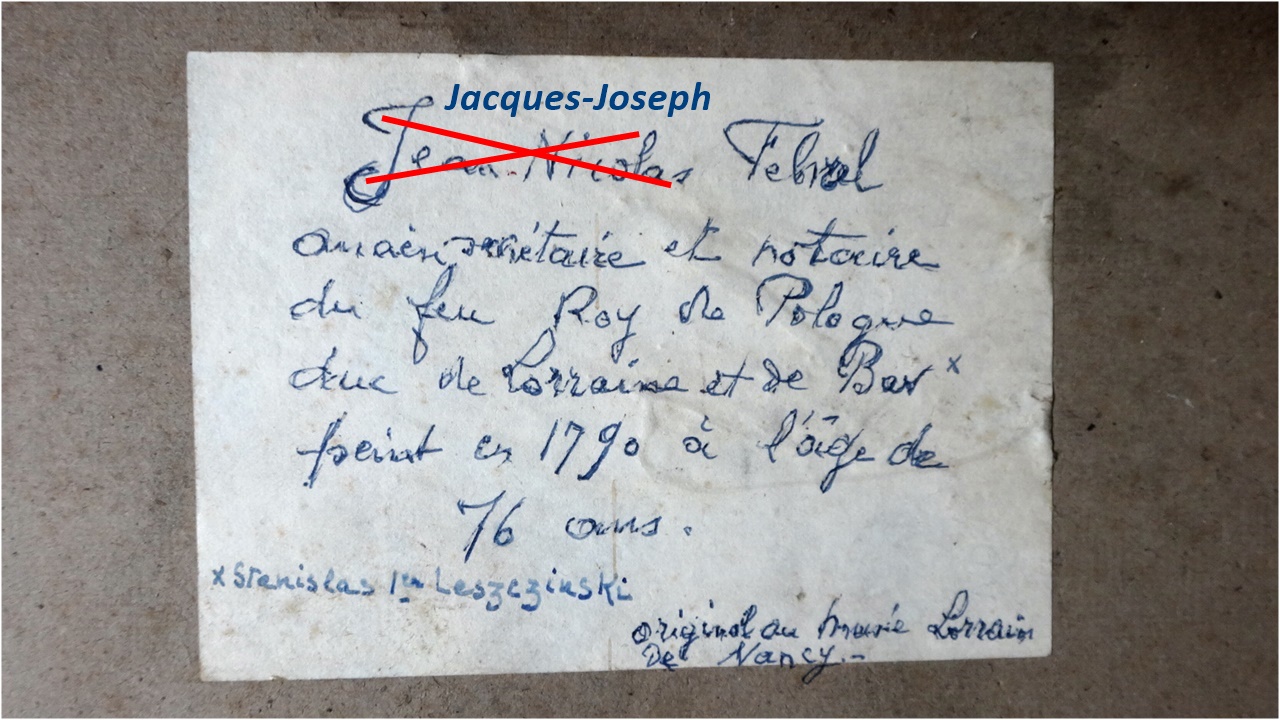 Jacques-Joseph
Jean Nicolas Febvel
ancien secrétaire et notaire
du feu Roy de Pologne
duc de Lorraine et de Bar x
peint en 1790 à l'âge de
76 ans.
x Stanislas 1er Leszczinski
original au musée Lorrain
De Nancy.-